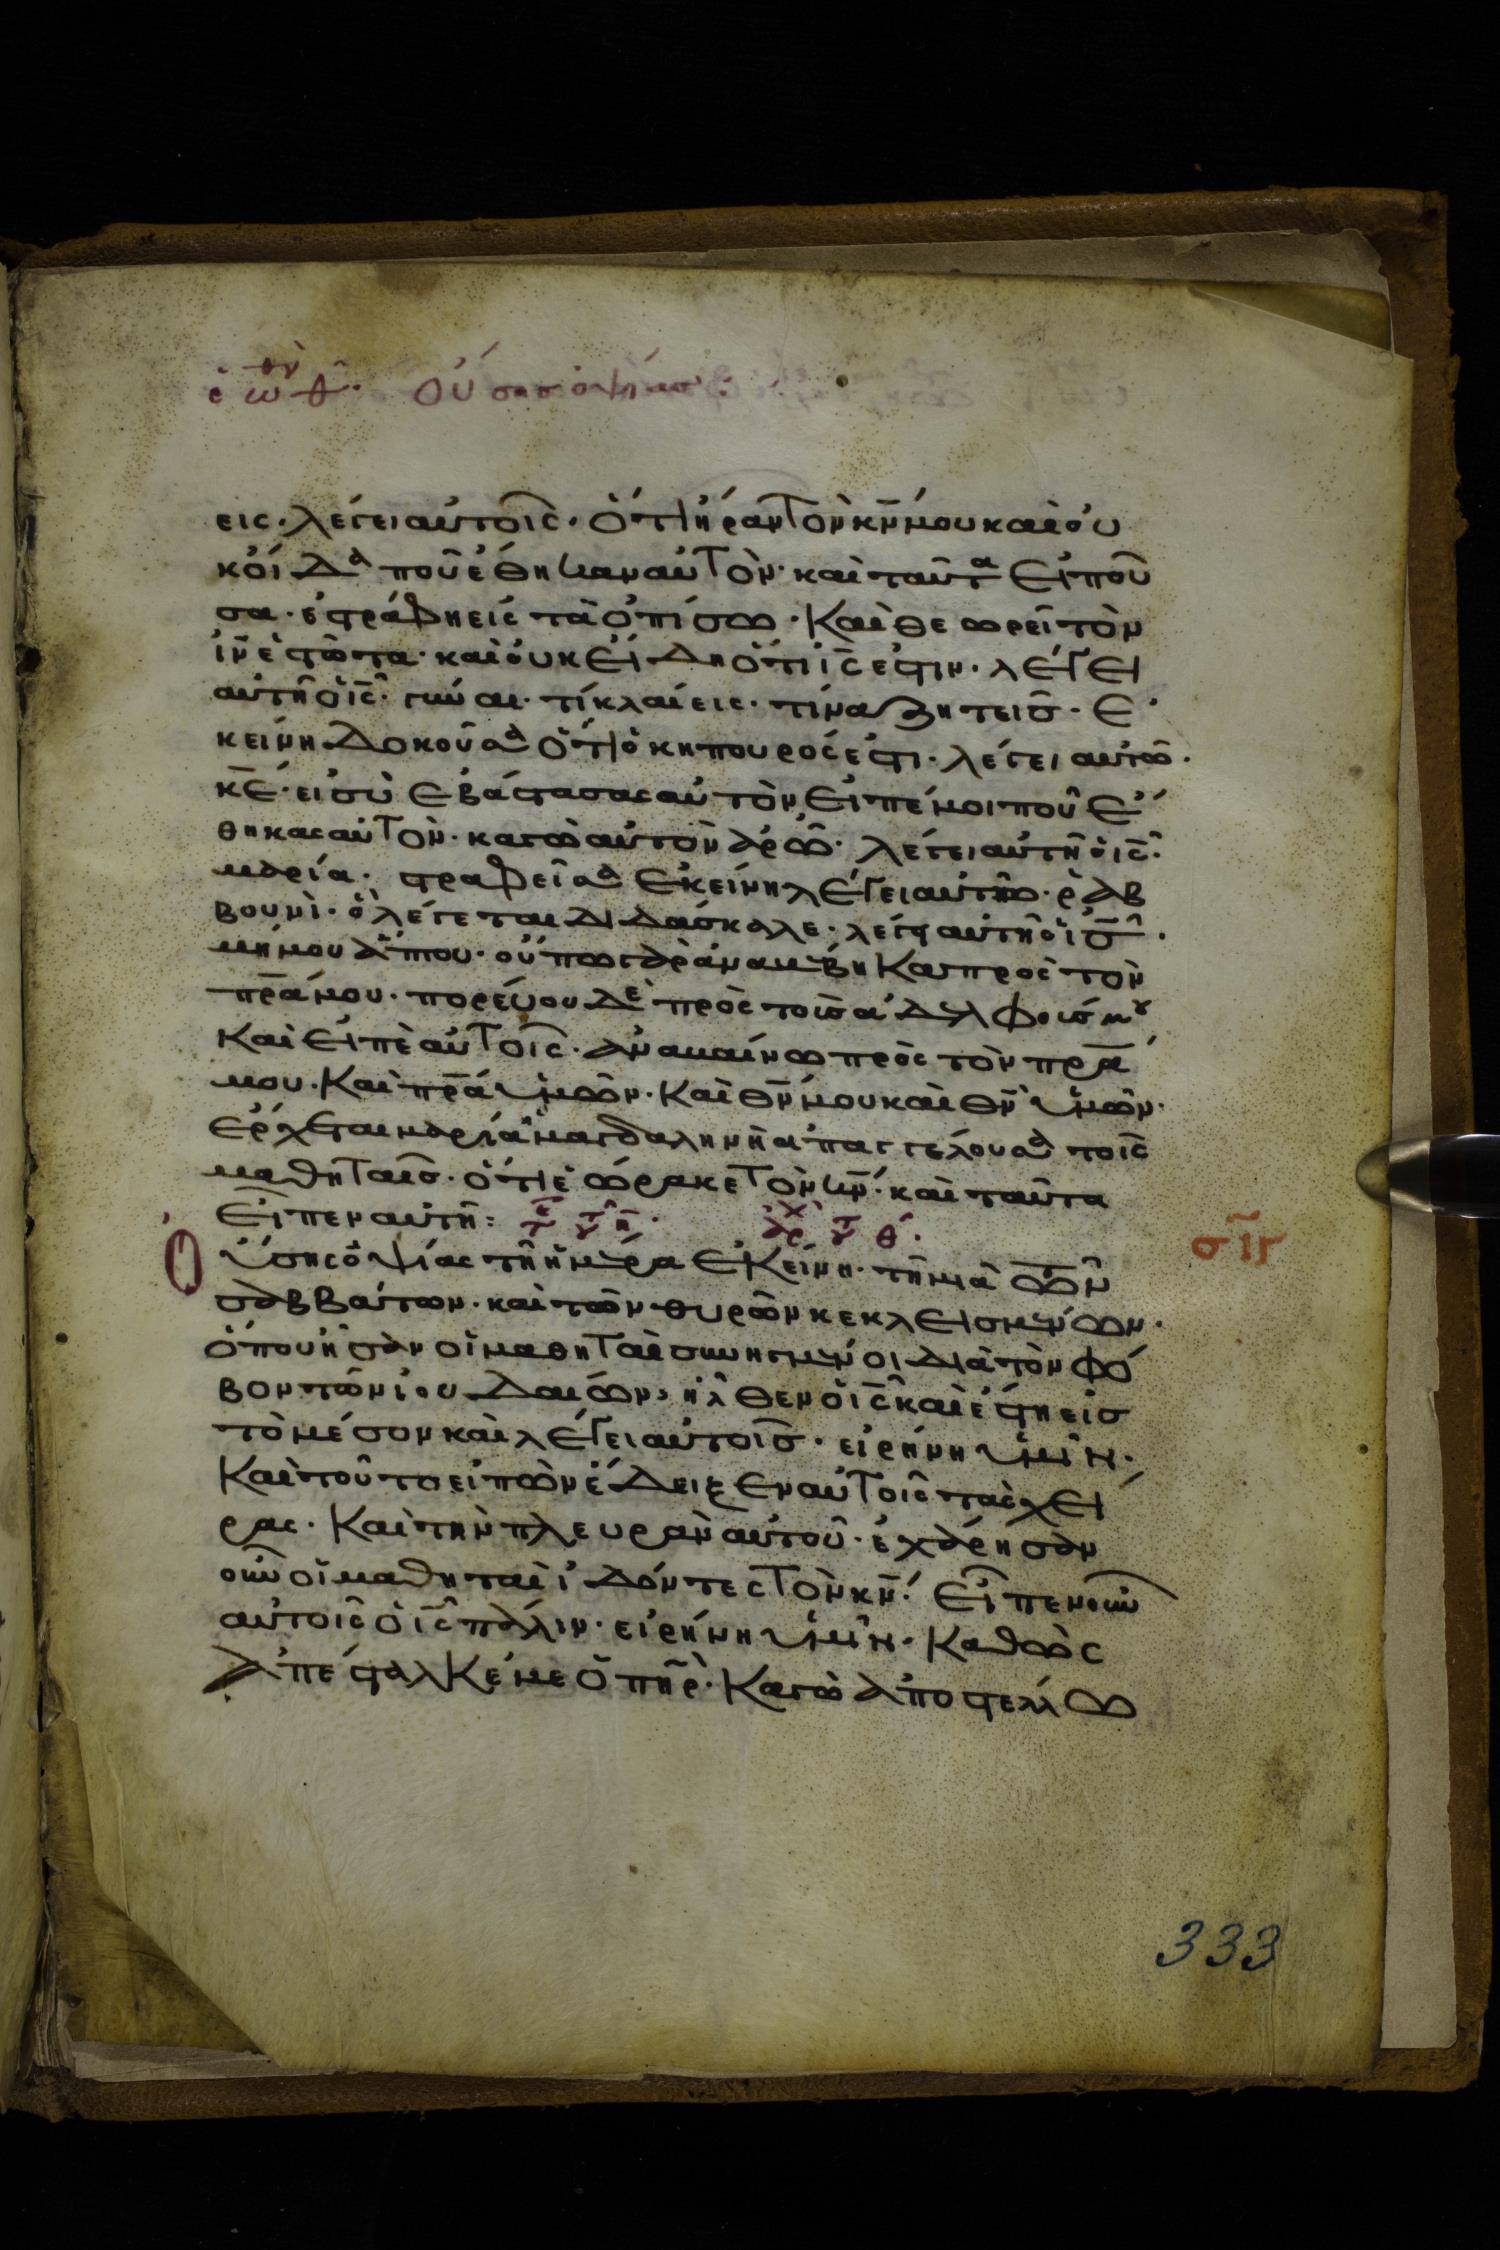 ἑωθ θ̂· Οὔσης ὀψίας:
εις· λέγει αὐτοῖς· ὅτι ἦραν τὸν κ̅ν̅ μου καὶ οὐ
κ οἶδα ποῦ ἔθηκαν αὐτόν· καὶ ταῦτα εἰποῦ
σα· ἐστράφη εἰς τὰ ὀπίσω· Καὶ θεωρεῖ τὸν
ι̅ν̅ ἐστῶτα· καὶ οὐκ εἴδη ὅτι ι̅ς̅ ἐστιν· λέγει
αὐτῇ ὁ ι̅ς̅· γύναι· τί κλαίεις· τίνα ζητεῖς· Ἐ
κείνη δοκοῦσα ὅτι ὁ κηπουρός ἐστι· λέγει αὐτῶ·
κ̅ε̅· εἰ σὺ ἐβάστασας αὐτὸν εἰπέ μοι ποῦ ἔ
θηκας αὐτόν· καγὼ αὐτὸν ἀρῶ· λέγει αὐτῇ ὁ ι̅ς̅·
μαρία· στραφεῖσα ἐκείνη λέγει αὐτῶ· ραβ
βουνὶ· ὃ λέγεται διδάσκαλε· λέγει αὐτῇ ὁ ι̅ς̅·
μή μου ἅπτου· οὔπω γὰρ ἀναβέβηκα πρὸς τὸν
π̅ρ̅α̅ μου· πορεύου δὲ πρὸς τοὺς ἀδελφούς μου
Καὶ εἰπὲ αὐτοῖς· ἀναβαίνω πρὸς τὸν π̅ρ̅α̅
μου· Καὶ π̅ρ̅α̅ ὑμῶν· Καὶ θ̅ν̅ μου καὶ θ̅ν̅ ὑμῶν·
ἔρχεται μαρία ἡ μαγδαληνὴ ἀπαγγέλουσα τοῖς
μαθηταῖς· ὅτι ἑώρακε τὸν κ̅ν̅· καὶ ταῦτα
εἶπεν αὐτῇ:
Οὔσης ὀψίας τῇ ἡμέρα ἐκείνη· τῇ μιᾶ τῶν σ̅ι̅γ̅
σαββάτων· καὶ τῶν θυρῶν κεκλεισμένων·
ὅπου ἦσαν οἱ μαθηταὶ συνηγμένοι διὰ τὸν φό
βον τῶν ἰουδαίων, ἦλθεν ὁ ι̅ς̅ καὶ ἔστη εἰς
τὸ μέσον καὶ λέγει αὐτοῖς· εἰρήνη ὑμῖν·
Καὶ τοῦτο εἰπὼν ἔδειξεν αὐτοῖς τὰς χεῖ
ρας· Καὶ τὴν πλευρὰν αὐτοῦ· ἐχάρησαν
οὖν οἱ μαθηταὶ ἰδόντες τὸν κ̅ν̅· εἶπεν οὖν
αὐτοῖς ὁ ι̅ς̅ πάλιν· εἰρήνη ὑμῖν· Καθὼς
ἀπέσταλκέ με ὁ π̅η̅ρ̅· Καγὼ ἀποστέλλω
333